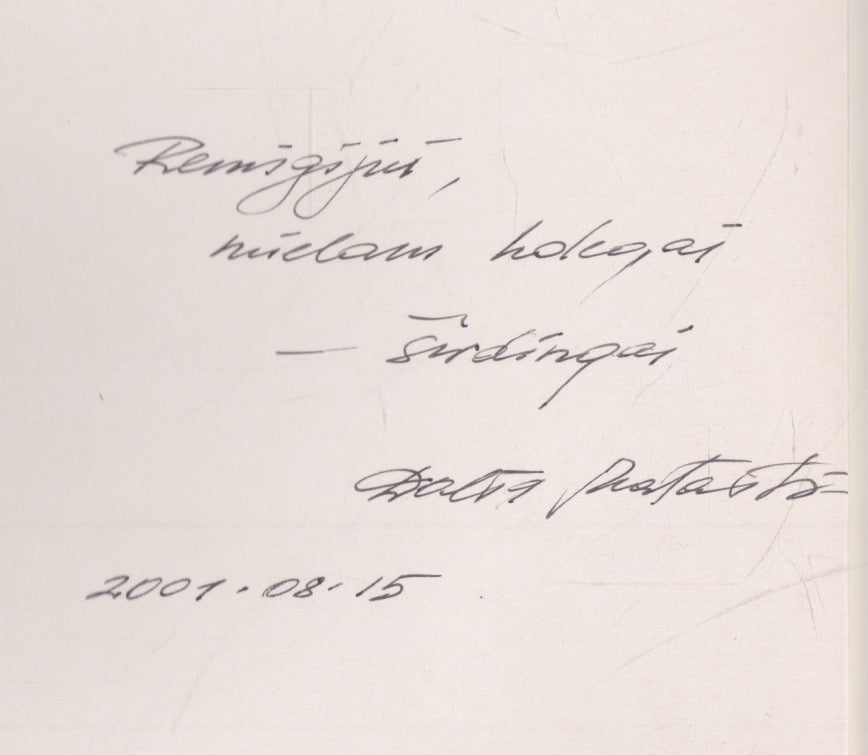 Remigijui,
mielam kolegai
— širdingai
Dalia
2001.08.15